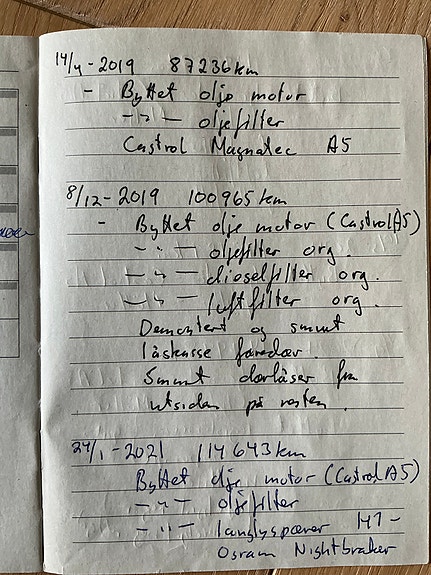 14/4 - 2019 87236km
- Byttet olje motor
-"- oljefilter
Castrol Magnatec A5
8/12 - 2019 100965km
- Byttet olje motor (Castrol A5)
-"- oljefilter org.
-"- dieselfilter org.
-"- luftfilter org.
Demontert og smurt
låskasse føredør.
Smurt dørlåser fra
utsiden på resten.
24/1 - 2021 114643km
Byttet olje motor (Castrol A5)
-"- oljefilter
-"- langlyspærer H7 -
Osram Nightbraker